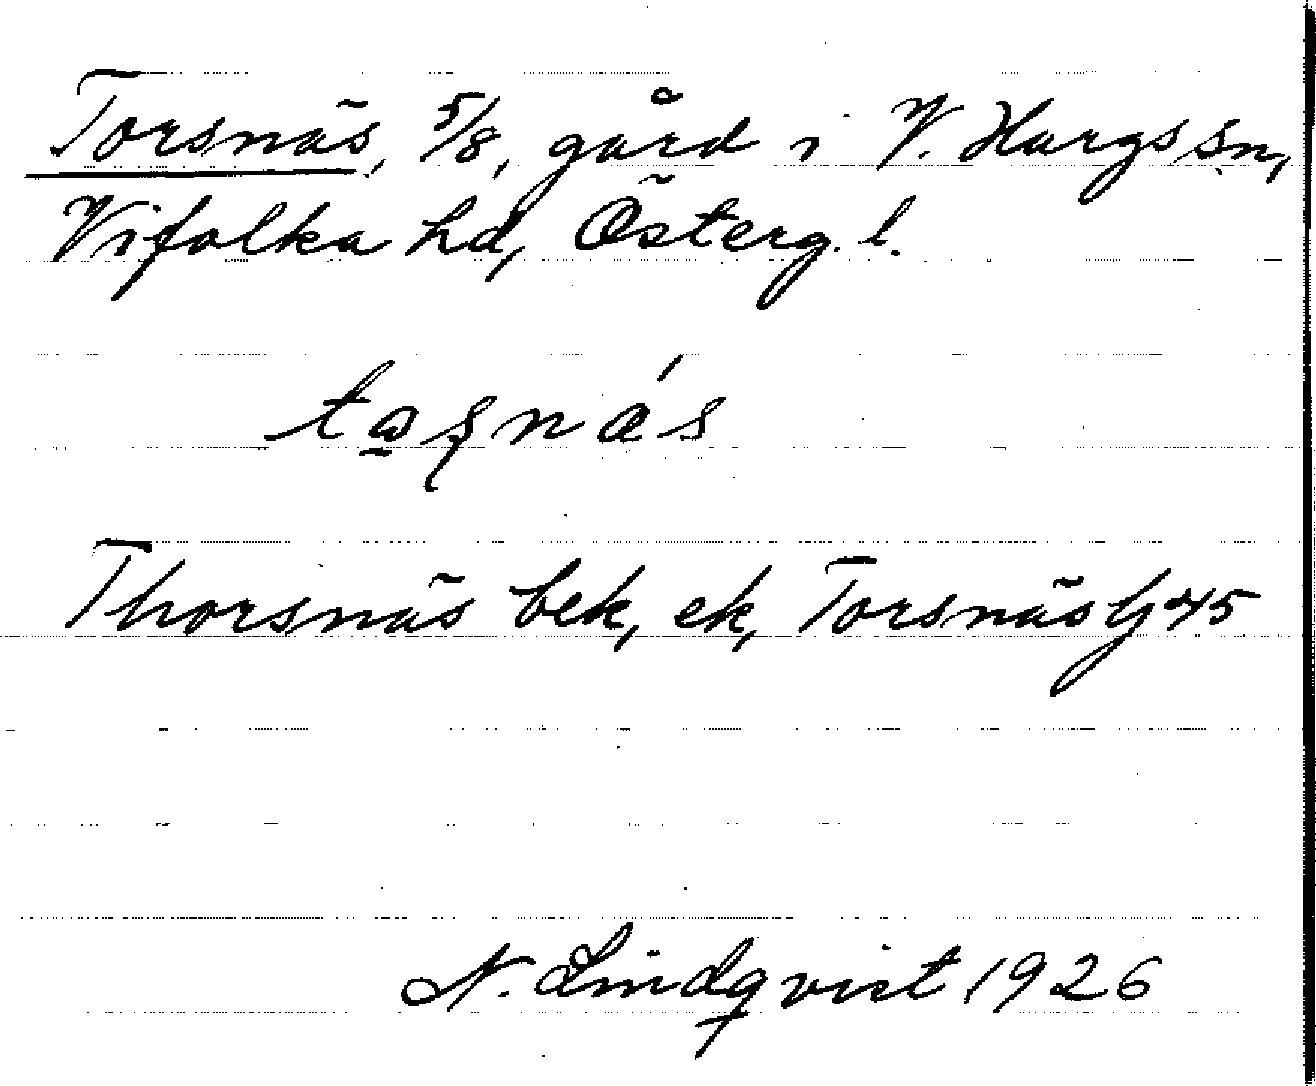 Torsnäs, 5/8, gård i V. Hargs sn,
Vifolka hd, Österg. l.
Thorsnäs bek, ek, Torsnäs Gj 45
N. Lindqvist 1926